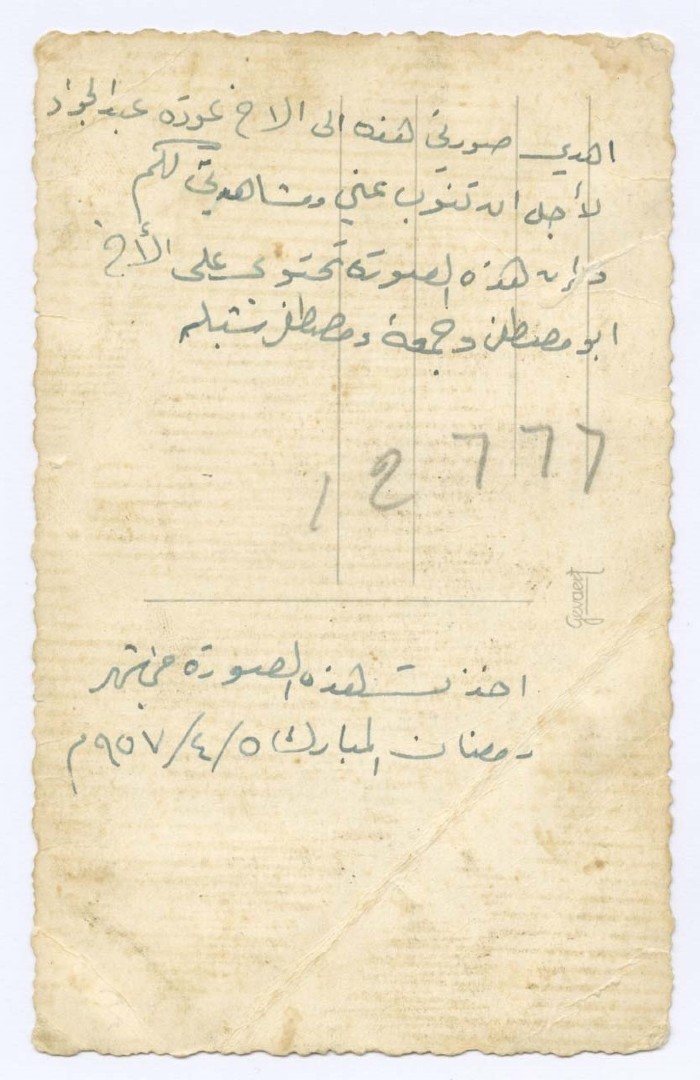 اهدي صورتي هذه الى الاخ عودة عبد الجواد
لأجل ان تنوب عني ومشاهدتي لكم
وان هذه الصورة تحتوي على الأخ
ابو مصطفى وجمعة ومصطفى
12777
Gevaert
اخذت هذه الصورة في شهر
رمضان المبارك ٥/٤/٩٥٧م